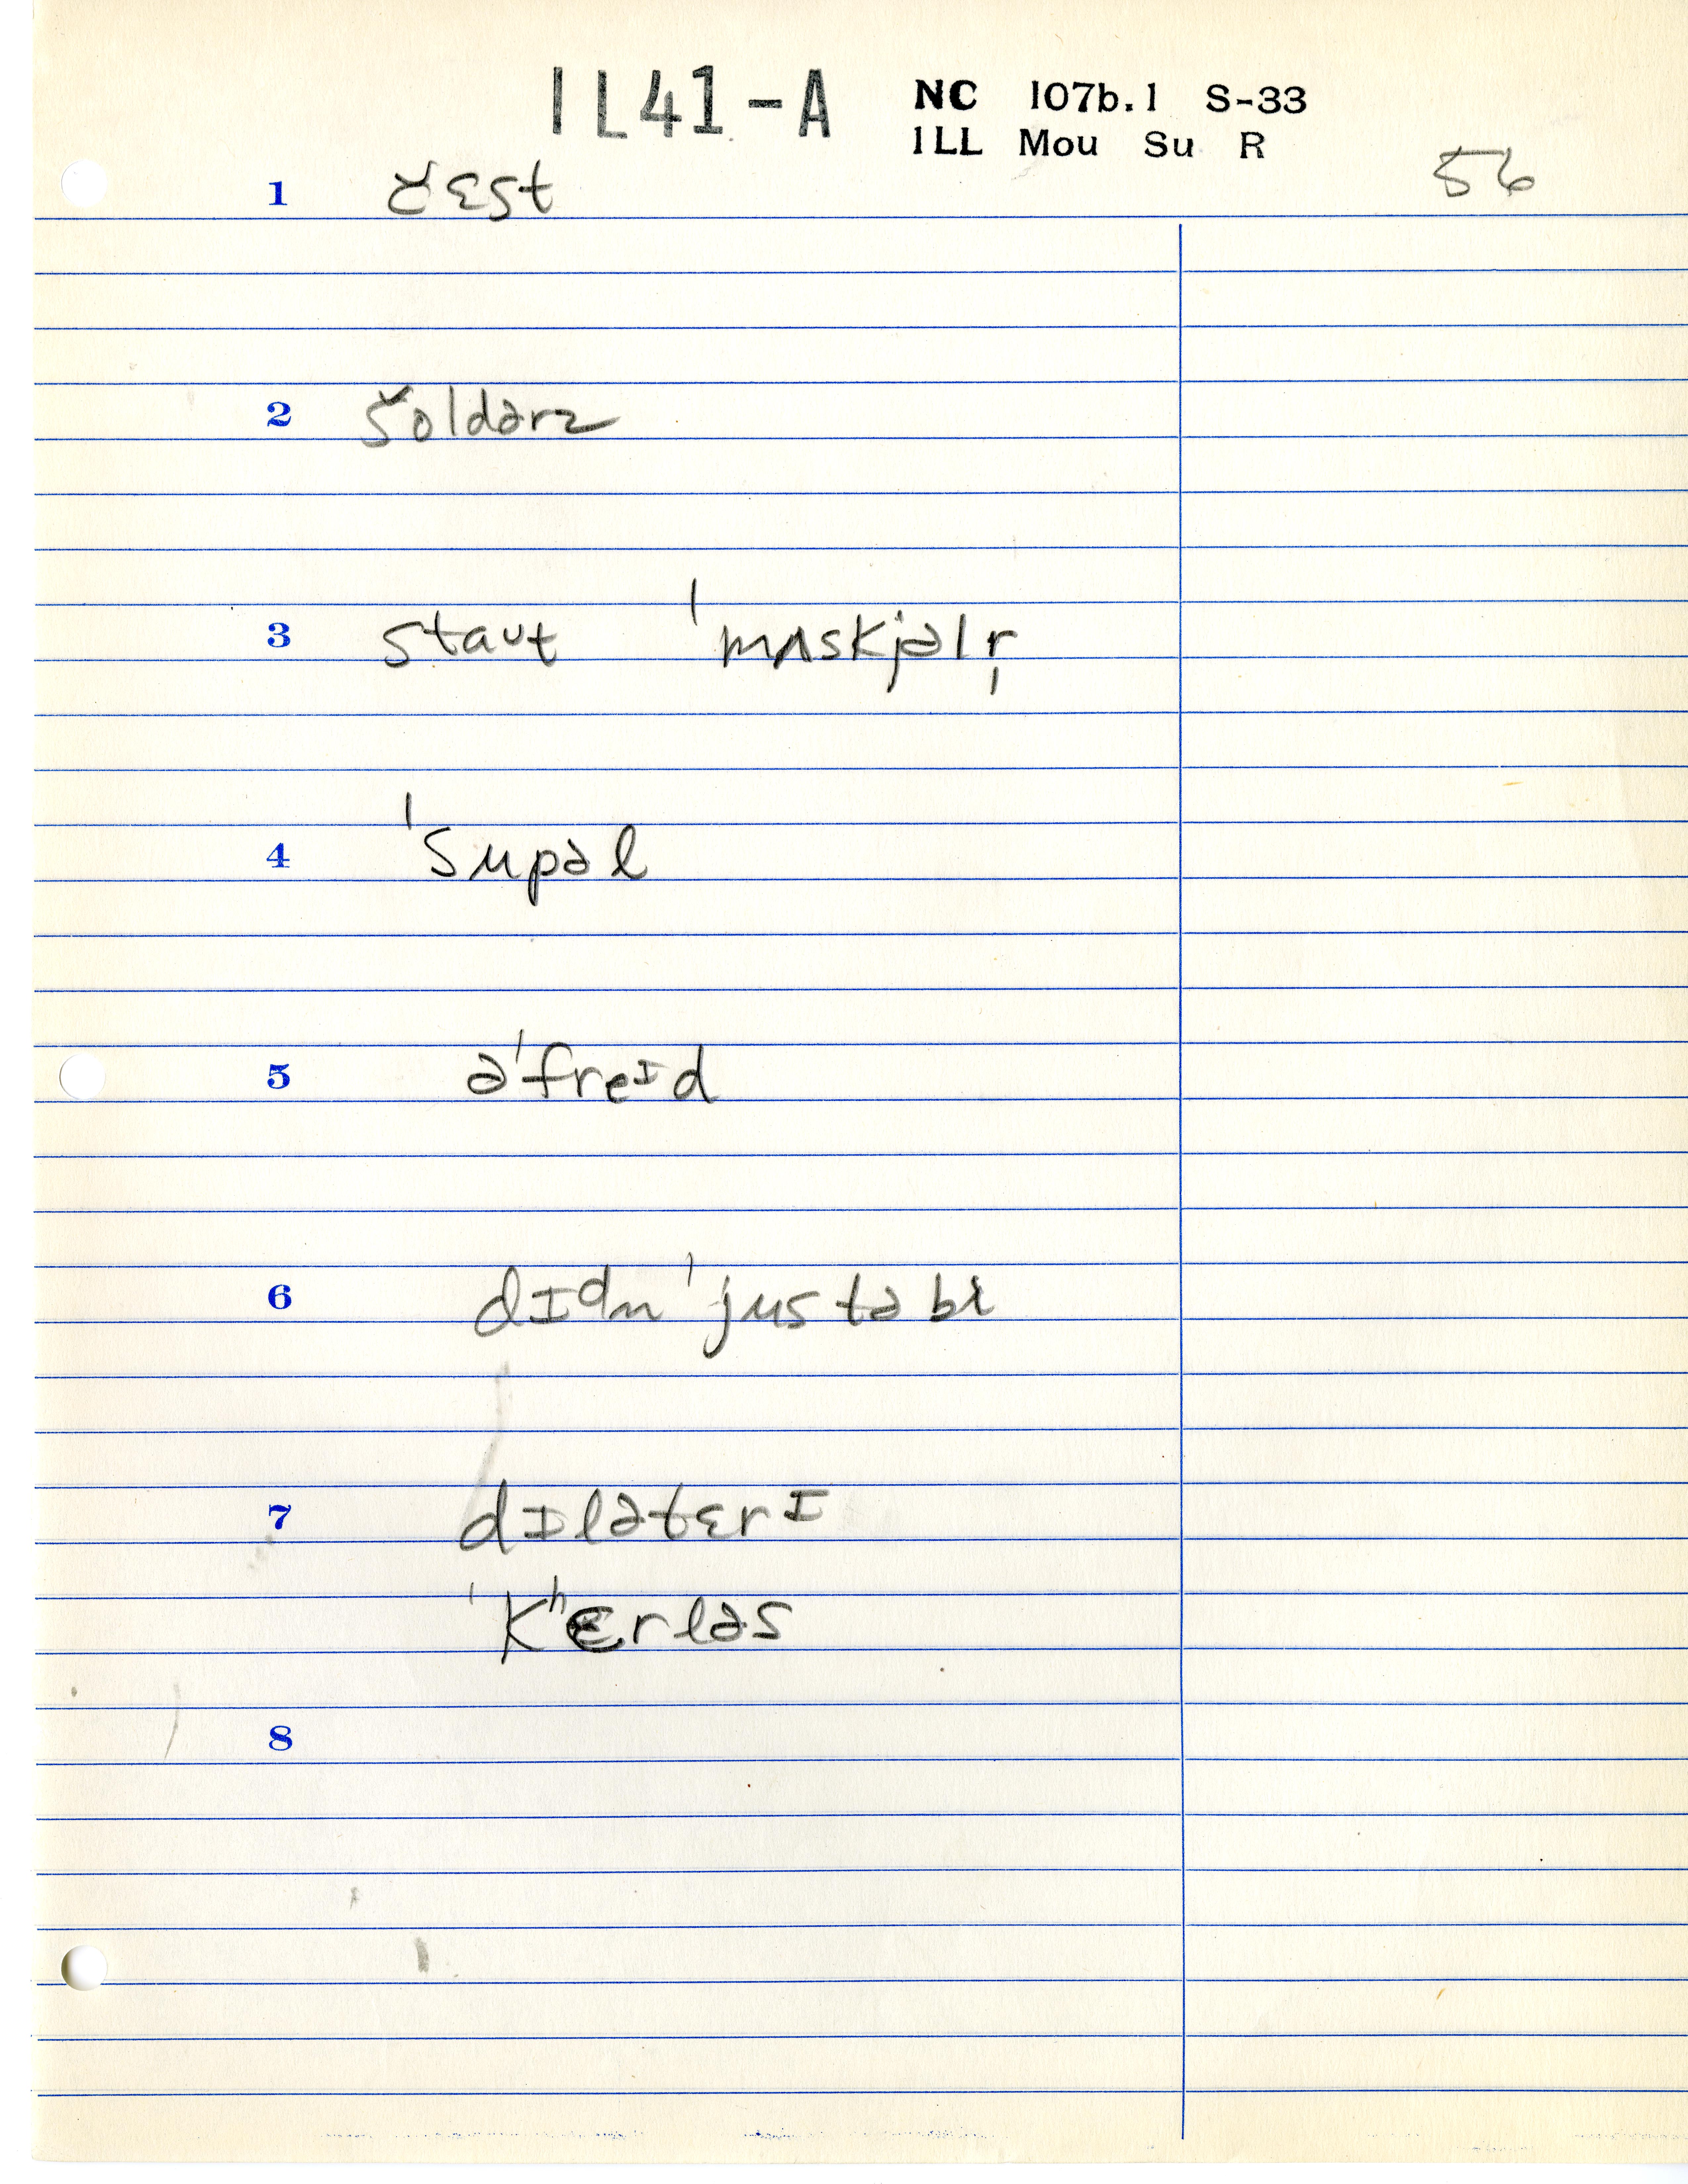 1L41-A NC 107b.1 S-33
ILL Mou Su R
56
1 čɛst
2 šoldərz
3 staʊt ˈmʌskjəlr̩
4 ˈsupəl
5 əˈfreɪd
6 dɪᵈn ˈjus tə bi
7 dɪlətɛrɪ
ˈkʰɛrləs
8